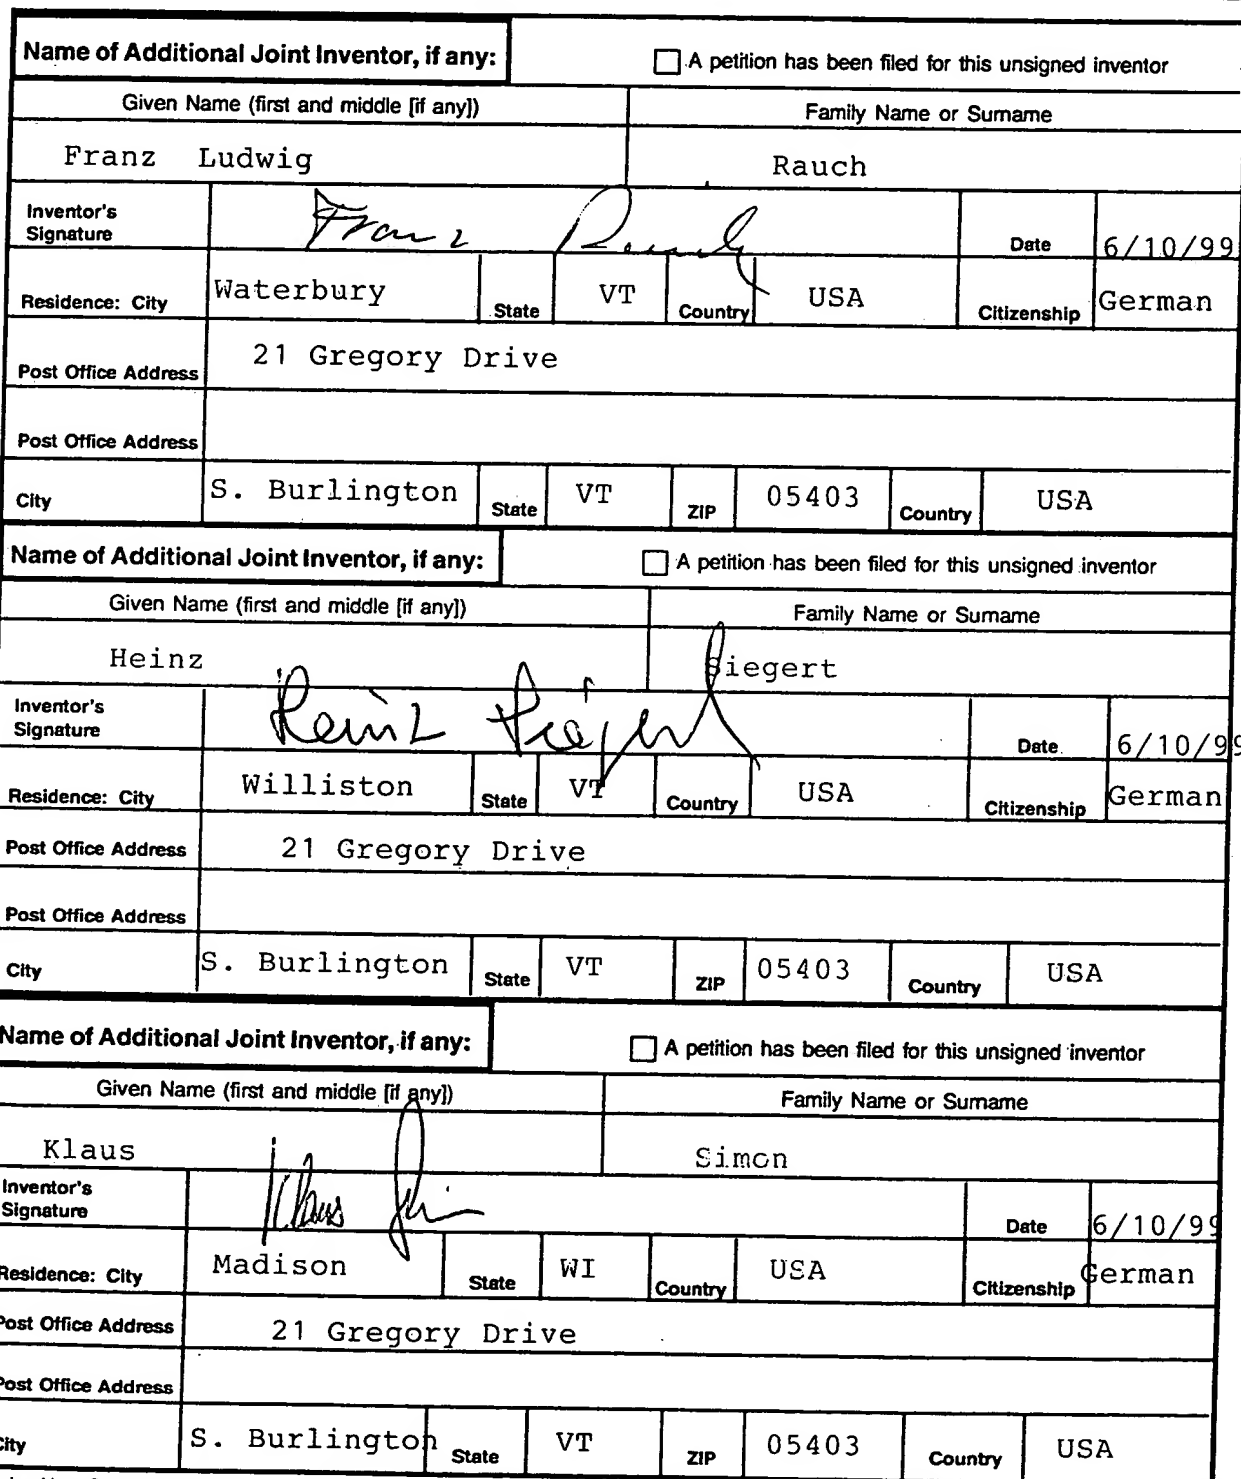 Name of Additional Joint Inventor, if any: A petition has been filed for this unsigned inventor
Given Name (first and middle [if any]) Family Name or Surname
Franz Ludwig Rauch
Inventor's Signature Franz Rauch Date 6/10/99
Residence: City Waterbury State VT Country USA Citizenship German
Post Office Address 21 Gregory Drive
Post Office Address
City S. Burlington State VT ZIP 05403 Country USA
Name of Additional Joint Inventor, if any: A petition has been filed for this unsigned inventor
Given Name (first and middle [if any]) Family Name or Surname
Heinz Siegert
Inventor's Signature Heinz Siegert Date 6/10/99
Residence: City Williston State VT Country USA Citizenship German
Post Office Address 21 Gregory Drive
Post Office Address
City S. Burlington State VT ZIP 05403 Country USA
Name of Additional Joint Inventor, if any: A petition has been filed for this unsigned inventor
Given Name (first and middle [if any]) Family Name or Surname
Klaus Simon
Inventor's Signature Klaus Simon Date 6/10/99
Residence: City Madison State WI Country USA Citizenship German
Post Office Address 21 Gregory Drive
Post Office Address
City S. Burlington State VT ZIP 05403 Country USA